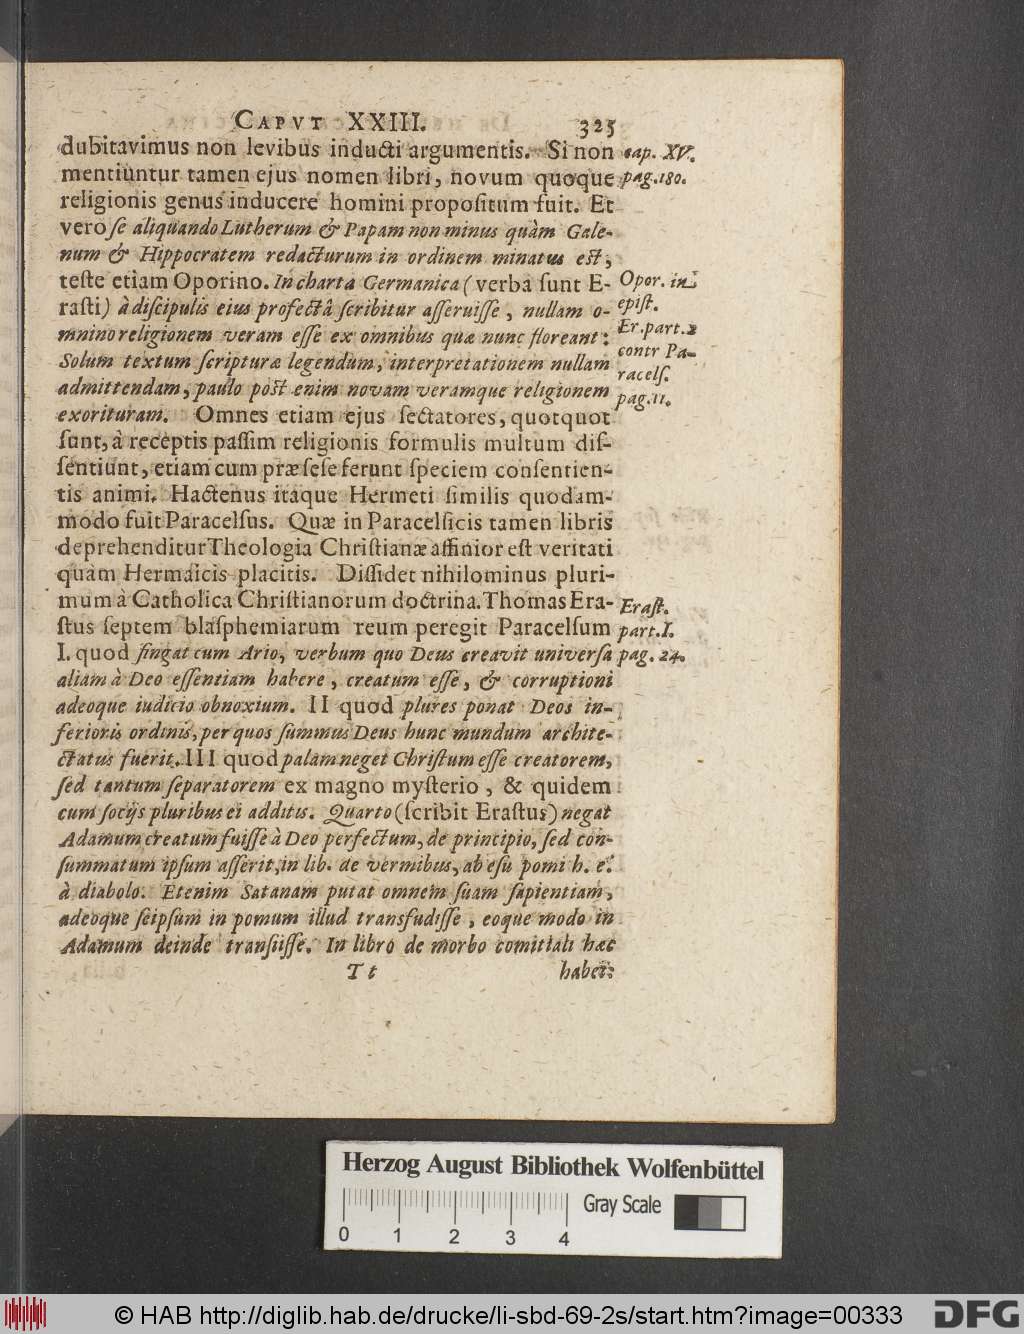 CAPVT XXIII. 325
dubitavimus non levibus inducti argumentis. Si non cap. XV.
mentiuntur tamen ejus nomen libri, novum quoque pag. 180.
religionis genus inducere homini propositum fuit. Et
vero se aliquando Lutherum & Papam non minus quàm Gale-
num & Hippocratem redacturum in ordinem minatus est,
teste etiam Oporino. In charta Germanica (verba sunt E- Opor. in
rasti) à discipulis eius profectâ scribitur asseruisse, nullam o- epist.
mnino religionem veram esse ex omnibus quæ nunc floreant: Er. part. 2
Solum textum scripturæ legendum, interpretationem nullam contr Pa-
admittendam, paulo pòst enim novam veramque religionem racels.
exorituram. Omnes etiam ejus sectatores, quotquot pag. 11.
sunt, à receptis passim religionis formulis multum dis-
sentiunt, etiam cum præ se se ferunt speciem consentien-
tis animi. Hactenus itaque Hermeti similis quodam-
modo fuit Paracelsus. Quæ in Paracelsicis tamen libris
deprehenditur Theologia Christianæ affinior est veritati
quàm Hermaicis placitis. Dissidet nihilominus pluri-
mum à Catholica Christianorum doctrina. Thomas Era- Erast.
stus septem blasphemiarum reum peregit Paracelsum part. I.
I. quod fingat cum Ario, verbum quo Deus creavit universa pag. 24.
aliam à Deo essentiam habere, creatum esse, & corruptioni
adeoque iudicio obnoxium. II quod plures ponat Deos in-
ferioris ordinis, per quos summus Deus hunc mundum archite-
ctatus fuerit. III quod palam neget Christum esse creatorem,
sed tantum separatorem ex magno mysterio, & quidem
cum socijs pluribus ei additis. Quarto (scribit Erastus) negat
Adamum creatum fuisse à Deo perfectum, de principio, sed con-
summatum ipsum asserit, in lib. de vermibus, ab esu pomi h. e.
à diabolo. Etenim Satanam putat omnem suam sapientiam,
adeoque seipsum in pomum illud transfudisse, eoque modo in
Adamum deinde transiisse. In libro de morbo comitiali hæc
T t habet:
Herzog August Bibliothek Wolfenbüttel
Gray Scale
0 1 2 3 4
© HAB http://diglib.hab.de/drucke/li-sbd-69-2s/start.htm?image=00333
DFG